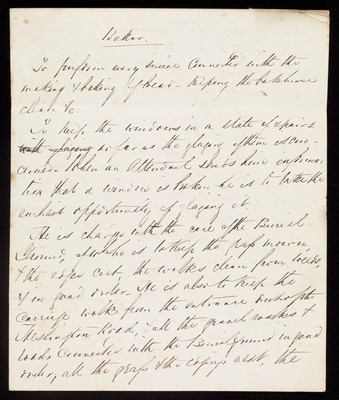 Baker.
To perform every service connected with the
making & baking of Bread - keeping the bakehouse
clean &c.
To keep the windows in a state of repair &
so far as the glazing of them is con-
cerned. When an Attendant sends him informa-
tion that a window is broken, he is to take the
earliest opportunity of glazing it
He is charged with the care of the Burial
Ground, & he is to keep the grass mown,
& the edges cut, the walks clean from weeds,
& in good order. He is also to keep the
carriage walk from the entrance on the
Heslington Road, all the gravel walks &
roads connected with the Burial Ground in good
order, all the grass & the edgings neat, the